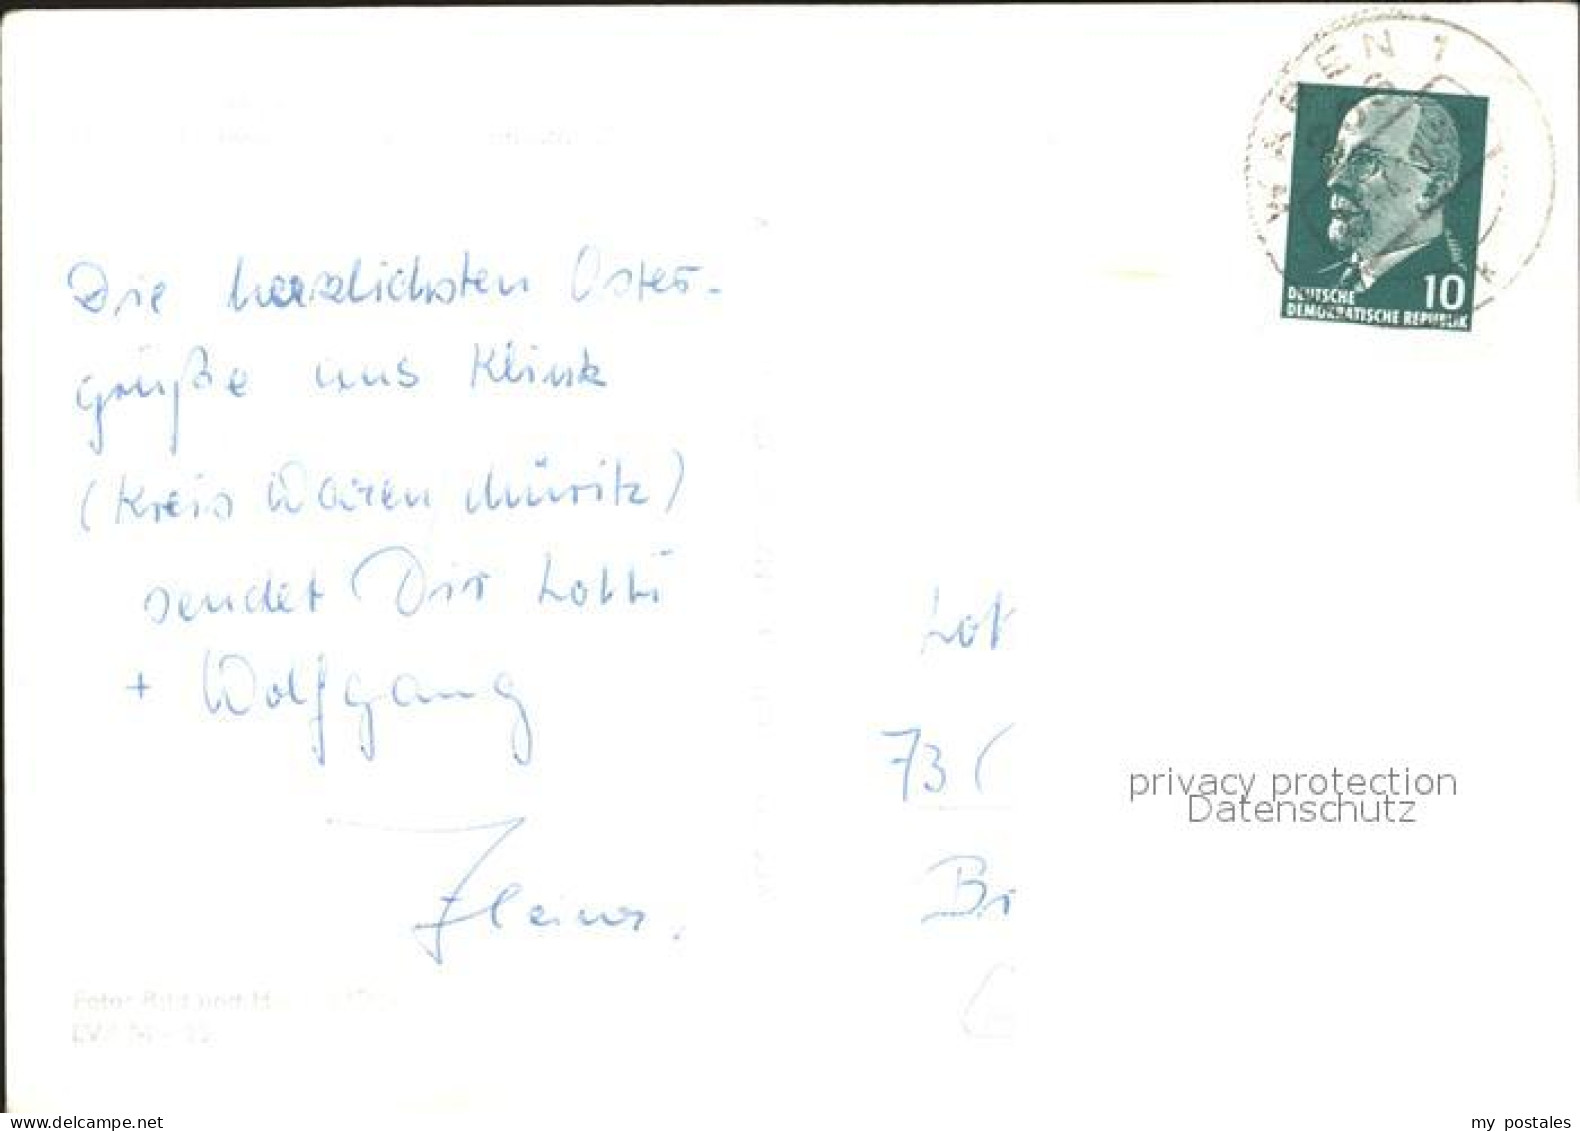 WAREN 1
DEUTSCHE 10
DEMOKRATISCHE REPUBLIK
Die herzlichsten Oster-
grüße aus Klink
(Kreis Waren Müritz)
sendet Dir Lotti
+ Wolfgang
Lot
73
privacy protection
Datenschutz
Bi
Foto: Bild und H
delcampe.net
my postales